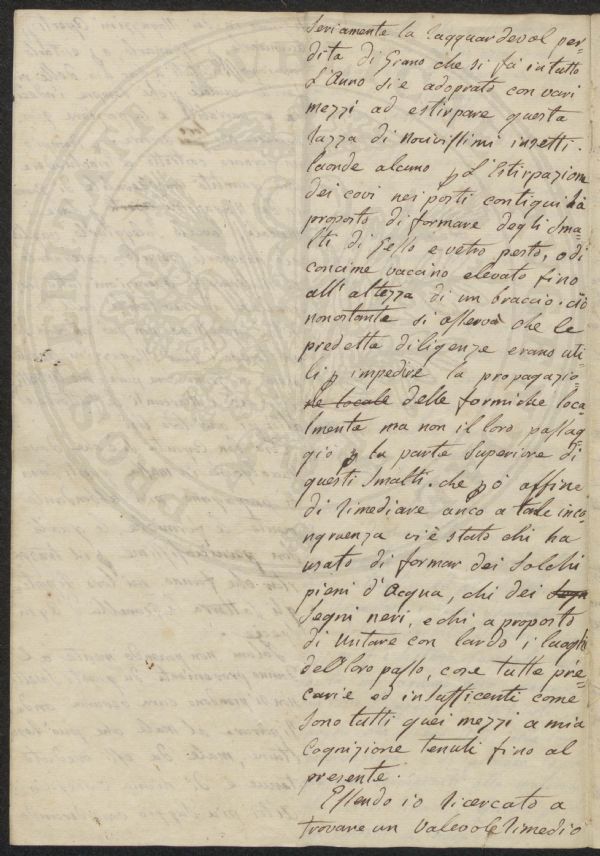 seriamente la ragguardevol per=
dita di Grano che si fa in tutto
L'Anno si e adoprato con vari
mezzi ad estirpare questa
razza di Nocivissimi insetti.
laonde alcuno p L'Estirpazione
dei covi nei posti contigui ha
proposto di formare degli Sma=
lti di Gesso e vetro pesto, o di
concime vaccino elevato fino
all'altezza di un braccio. ciò
nonostante si osservò che le
predette diligenze erano uti=
li p impedire la propagazio=
ne locale delle formiche loca=
lmente ma non il loro passag=
gio p la parte superiore di
questi Smalti. che p ò affine
di rimediare anco a tale inco=
ngruenza vi è stato chi ha
usato di formar dei Solchi
pieni d'Acqua, chi dei
Segni neri, e chi a proposto
di Untare con lardo i luoghi
del loro passo, cose tutte pre=
carie ed insufficenti come
sono tutti quei mezzi a mia
Cognizione tenuti fino al
presente.
Essendo io ricercato a
trovare un valevole rimedio